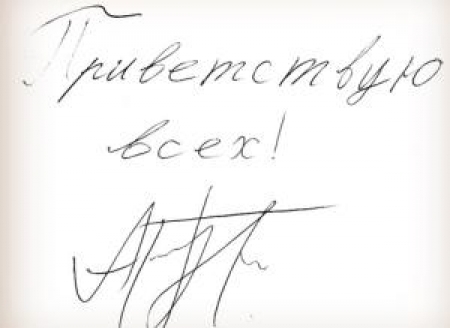 Приветствую
всех!